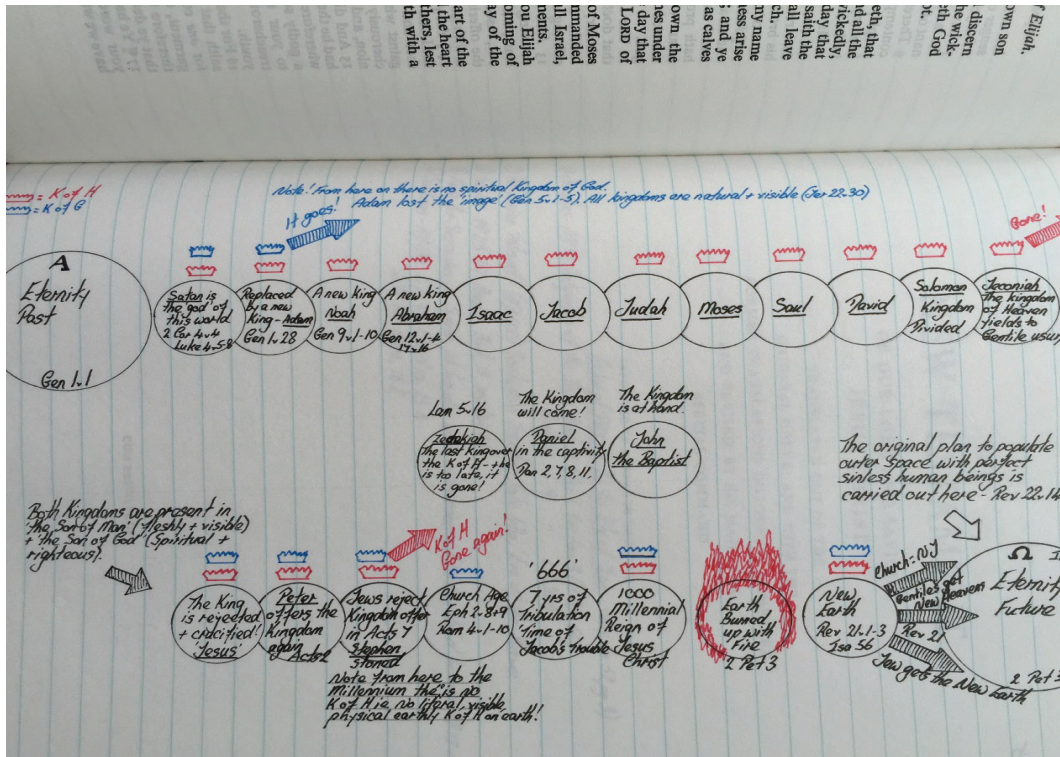 Elijah.
own son
discern
he wick-
eth God
ot.
eth, that
nd all the
vickedly,
day that
saith the
all leave
ch.
my name
ness arise
; and ye
as calves
own the
nes under
day that
LORD of
of Moses
mmanded
ll Israel,
ments.
ou Elijah
oming of
ay of the
art of the
the heart
thers, lest
th with a
= K of H
= K of G
Note! From here on there is no spiritual Kingdom of God.
Adam lost the 'image' (Gen 5v1-5). All kingdoms are natural + visible (Jer 22.30)
It goes!
Gone!
A
Eternity
Past
Gen 1v1
Satan is
the 'god' of
this world
2 Cor 4v4
Luke 4v5-8
Replaced
by a new
King - Adam
Gen 1v28
A new King
Noah
Gen 9v1-10
A new King
Abraham
Gen 12v1-4
17v16
Isaac
Jacob
Judah
Moses
Saul
David
Solomon
Kingdom
Divided
Jeconiah
The kingdom
of Heaven
yields to
Gentile usur
Lam 5v16
Zedekiah
the last king over
the K of H - he
is too late, it
is gone!
The Kingdom
will come!
Daniel
in the captivity
Dan 2, 7, 8, 11,
The Kingdom
is at hand.
John
the Baptist
The original plan to populate
outer space with perfect
sinless human beings is
carried out here - Rev 22v14
Both Kingdoms are present in
'the Son of Man' (fleshly + visible)
+ 'the Son of God' (Spiritual +
righteous).
The King
is rejected
+ crucified!
'Jesus'
Peter
offers the
Kingdom
again
Acts 2
Jews reject
Kingdom offer
in Acts 7
Stephen
stoned
K of H
Gone again!
Note from here to the
Millennium the' is no
K of H ie. no literal, visible,
physical earthly K of H on earth!
Church Age
Eph 2v8+9
Rom 4v1-10
'666'
7 yrs of
Tribulation
Time of
Jacob's trouble
1000
Millennial
Reign of
Jesus
Christ
Earth
Burned
up with
Fire
2 Pet 3
New
Earth
Rev 21v1-3
Isa 56
Church = NJ
Gentiles get
New Heavens
Rev 21
Jew gets the New Earth
Ω
Eternity
Future
2 Pet 3